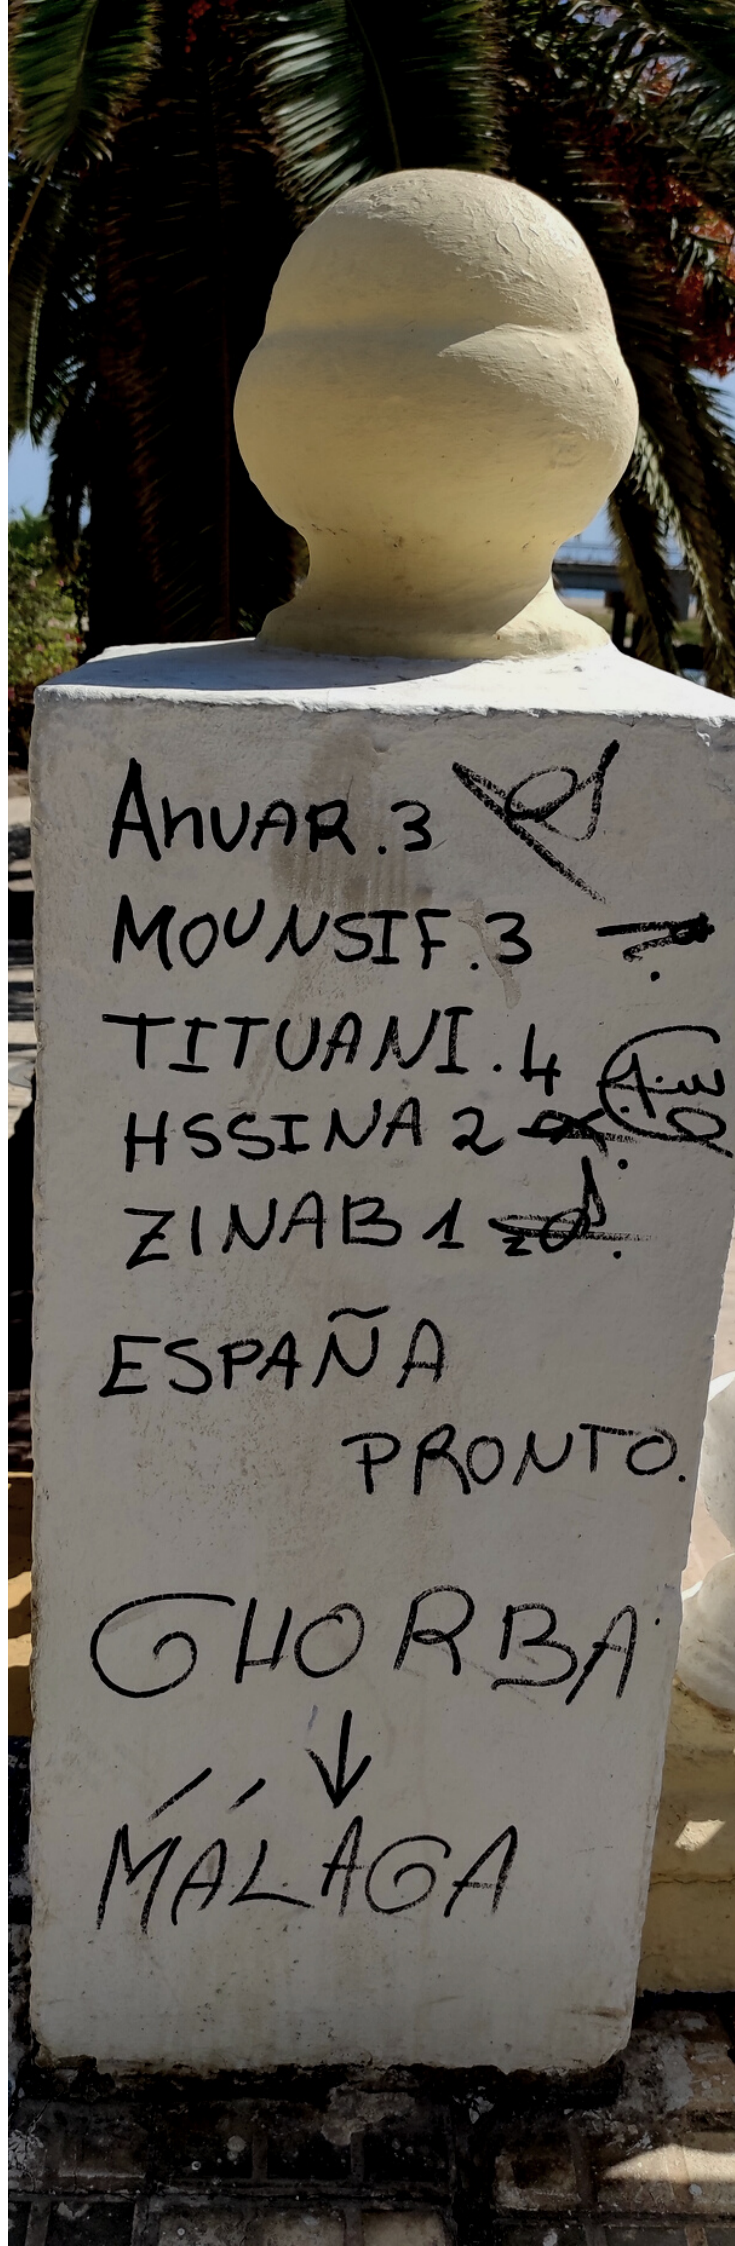 ANUAR.3
MOUNSIF.3
TITUANI.4
HSSINA 2
ZINAB 1
ESPAÑA
PRONTO.
GHORBA
↓
MÁLAGA